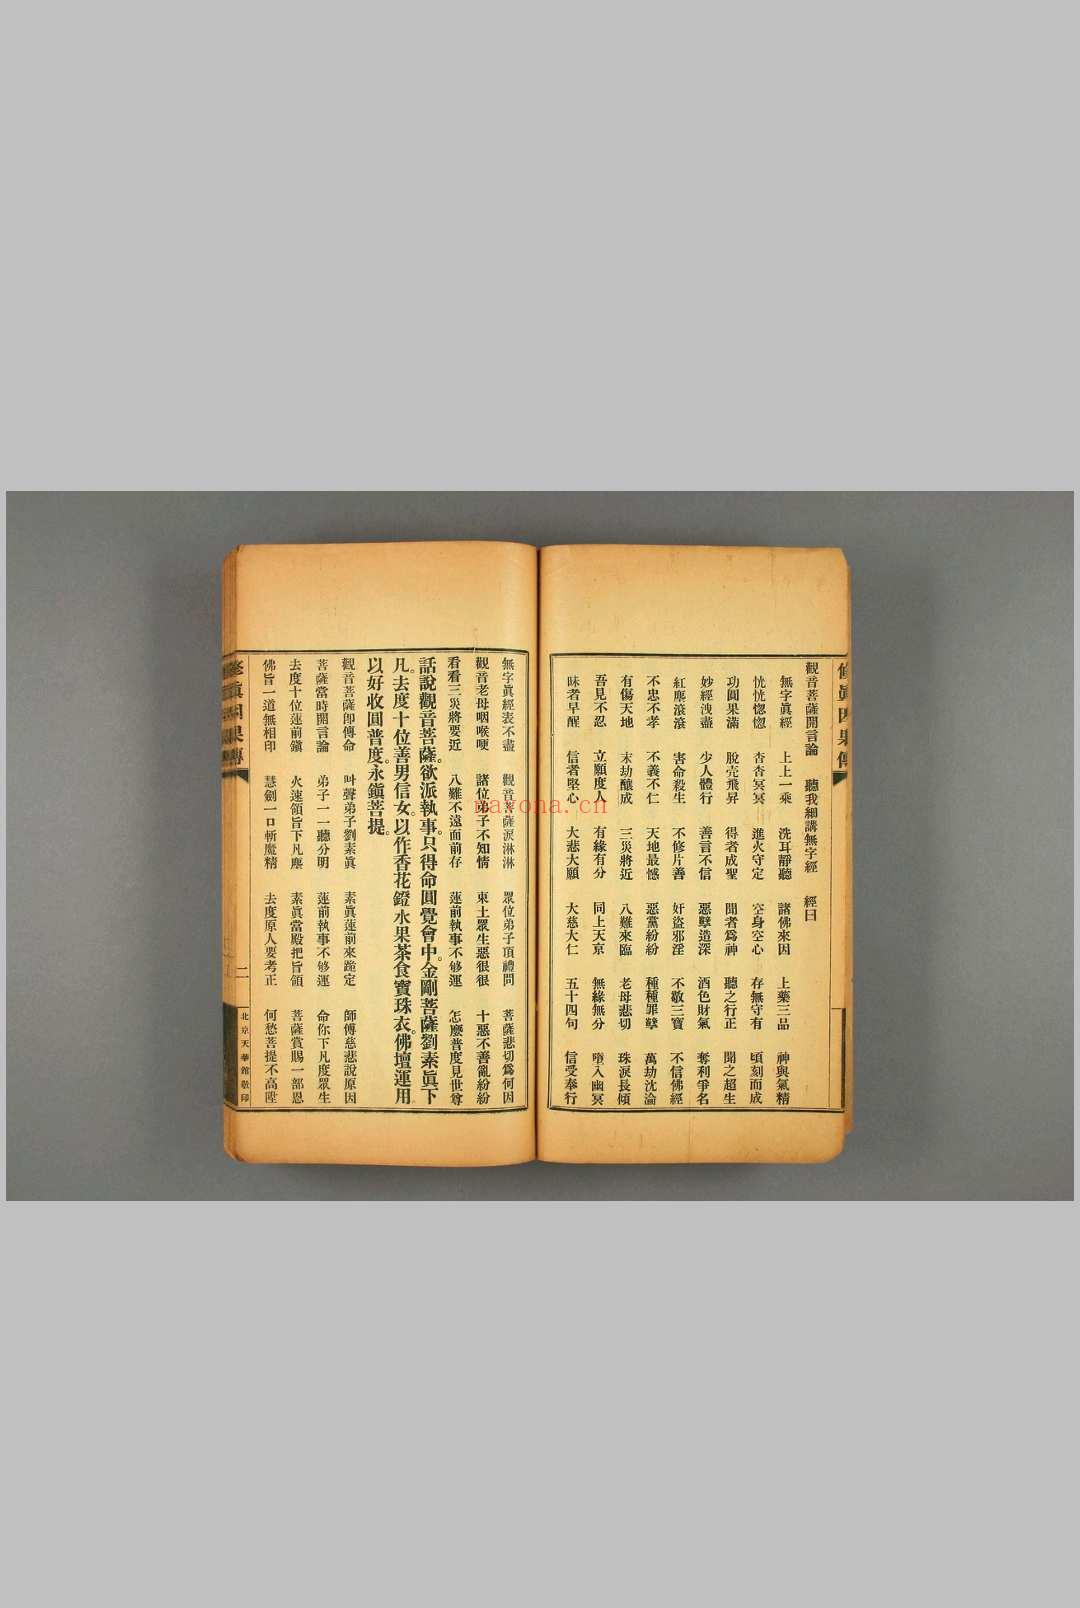 修眞因果傳
觀音菩薩開言論 聽我細講無字經 經曰
無字眞經 上上一乘 洗耳靜聽 諸佛來因 上藥三品 神與氣精
恍恍惚惚 杳杳冥冥 進火守定 空身空心 存無守有 頃刻而成
功圓果滿 脫壳飛昇 得者成聖 聞者爲神 聽之行正 聞之超生
妙經洩盡 少人體行 善言不信 惡孽造深 酒色財氣 奪利爭名
紅塵滾滾 害命殺生 不修片善 奸盜邪淫 不敬三寶 不信佛經
不忠不孝 不義不仁 天地最憾 惡黨紛紛 種種罪孽 萬劫沈淪
有傷天地 末劫釀成 三災將近 八難來臨 老母悲切 珠淚長傾
吾見不忍 立願度人 有緣有分 同上天京 無緣無分 墮入幽冥
昧者早醒 信者堅心 大悲大願 大慈大仁 五十四句 信受奉行
無字眞經表不盡 觀音菩薩淚淋淋 眾位弟子頂禮問 菩薩悲切爲何因
觀音老母咽喉哽 諸位弟子不知情 東土眾生惡很很 十惡不善亂紛紛
看看三災將要近 八難不遠面前存 蓮前執事不够運 怎麼普度見世尊
話說觀音菩薩。欲派執事。只得命圓覺會中。金剛菩薩劉素眞下
凡。去度十位善男信女。以作香花鐙水果茶食寶珠衣。佛壇運用
以好收圓普度。永鎭菩提。
觀音菩薩卽傳命 叫聲弟子劉素眞 素眞蓮前來跪定 師傅慈悲說原因
菩薩當時開言論 弟子一一聽分明 蓮前執事不够運 命你下凡度眾生
去度十位蓮前鎭 火速領旨下凡塵 素眞當殿把旨領 菩薩賞賜一部恩
佛旨一道無相印 慧劍一口斬魔精 去度原人要考正 何愁菩提不高陞
修眞因果傳
二
北京天華館敬印
nayona.cn